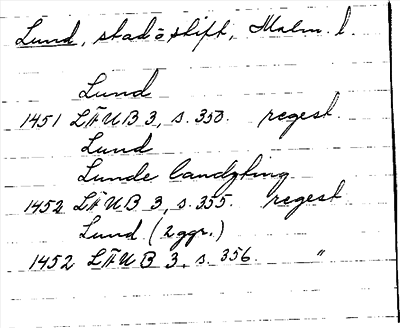 Lund, stad o stift, Malm. l.
Lund
1451 LÄUB 3, s. 350. regest
Lund
Lunde landzting
1452 LÄUB 3, s. 355. regest
Lund (2 ggr.)
1452 LÄUB 3, s. 356. "